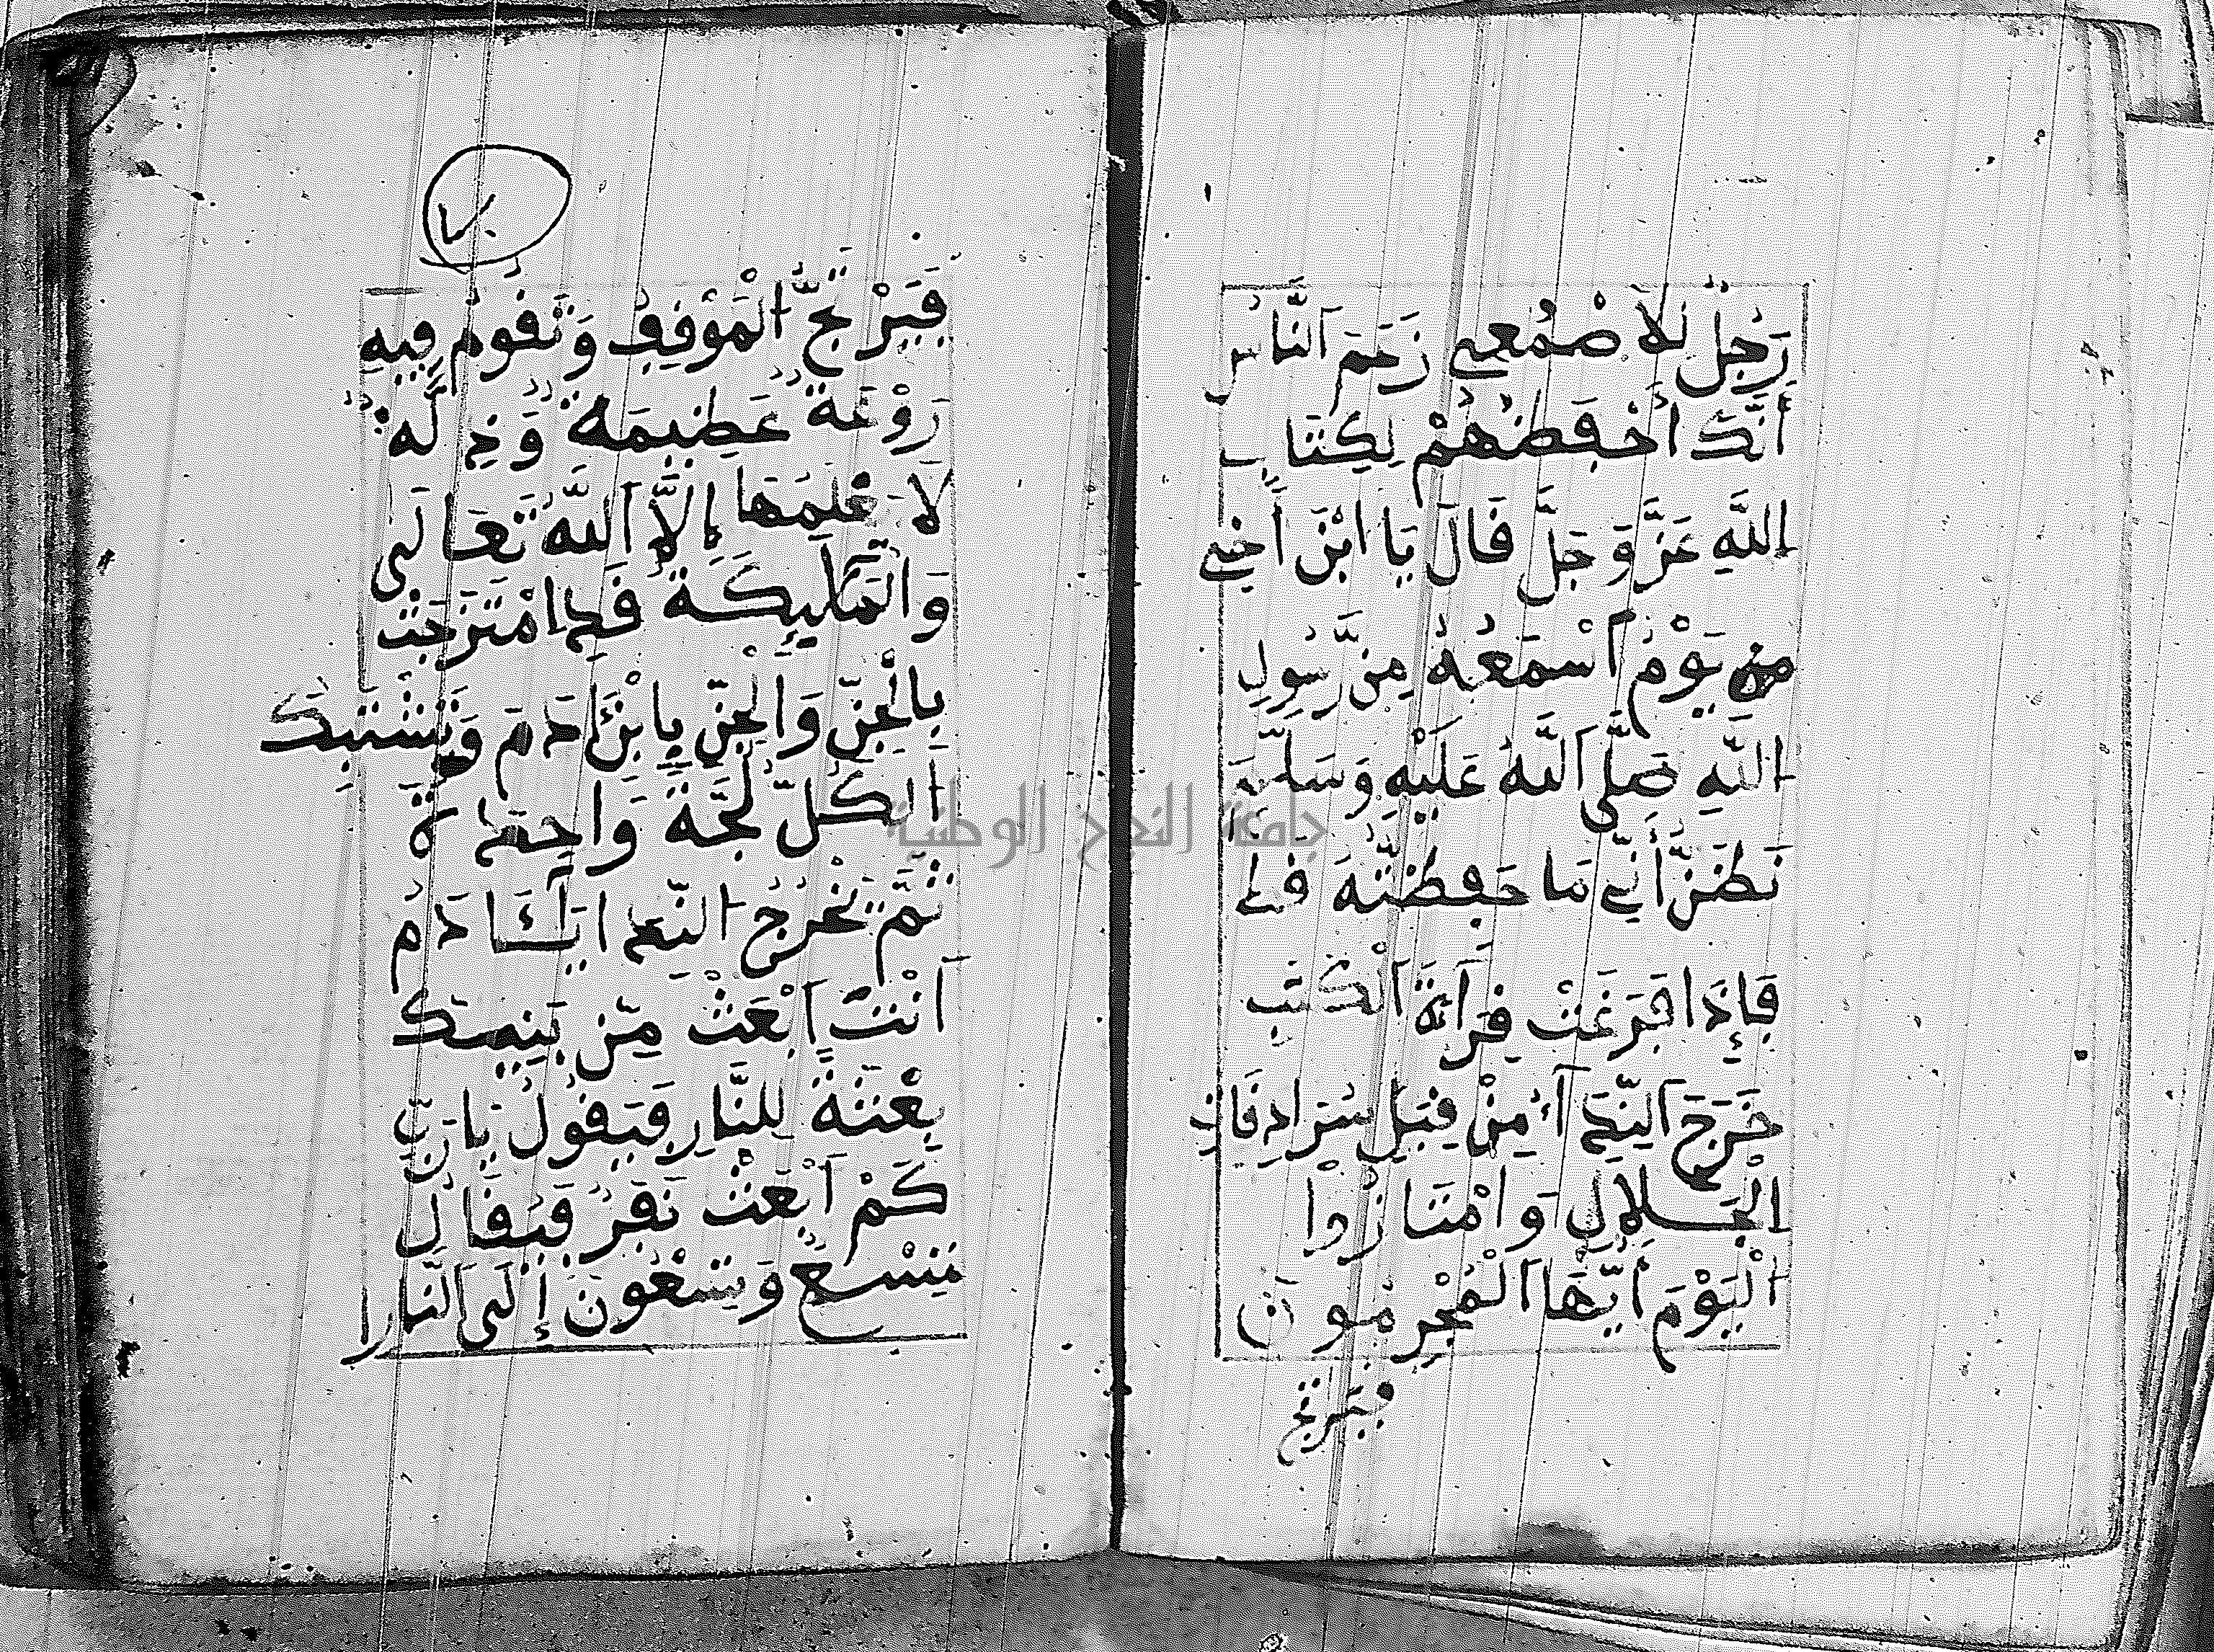 رَجُلٌ لِلْأَصْمُعِي زَعَمَ النَّاسُ
أَنَّكَ أَحْفَضُهُمْ لِكِتَابِ
اللَّهِ عَزَّ وَجَلَّ قَالَ يَا ابْنَ أَخِي
مِنْ يَوْمٍ أَسْمَعُهُ مِنْ رَسُولِ
اللَّهِ صَلَّى اللَّهُ عَلَيْهِ وَسَلَّمَ
تَظُنُّ أَنِّي مَا حَفِظْتُهُ
فَإِذَا فَرَغَتْ قِرَاءَةُ الْكُتُبِ
خَرَجَ النِّدَاءُ مِنْ قِبَلِ سُرَادِقَاتِ
الْجَلَالِ وَامْتَازُوا
الْيَوْمَ أَيُّهَا الْمُجْرِمُونَ
فيرتج
٧٠
فَيَرْتَجُّ الْمَوْقِفُ وَتَقُومُ فِيهِ
رَوْعَةٌ عَظِيمَةٌ
لَا يَعْلَمُهَا إِلَّا اللَّهُ تَعَالَى
وَالْمَلَٰئِكَةُ قَدِ امْتَزَجَتْ
بِالْجِنِّ وَالْجِنُّ بِابْنِ ءَادَمَ وَتَشْتَبِكُ
الْكُلُّ لُجَّةً وَاحِدَةً
ثُمَّ يَخْرُجُ النِّدَا يَا ءَادَمُ
أَنْتَ ابْعَثْ مِنْ بَنِيكَ
بِعْثَةً لِلنَّارِ فَيَقُولُ يَا رَبِّ
كَمْ أَبْعَثُ نَفَرً فَيُقَالُ
تِسْعٌ وَتِسْعُونَ إِلَى النَّارِ